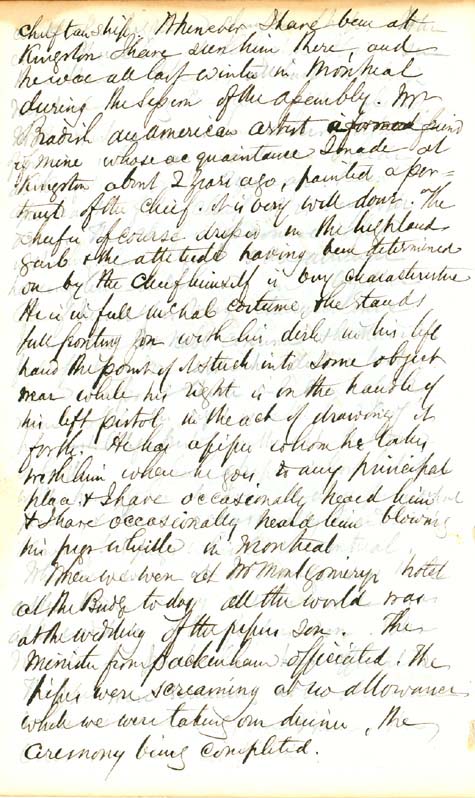 chieftainship. Whenever I have been at
Kingston I have seen him there, and
he was all last winter in Montreal
during the Session of the Assembly. Mr
Bradish an American artist a formed friend
of mine whose acquaintance I made at
Kingston about 2 years ago, painted a por=
trait of the Chief. It is very well done. The
chief is of course dressed in the highland
garb & the attitude having been determined
on by the Chief himself is very characteristic
He is in full costume, & he stands
full fronting you with his dirk in his left
hand the point of it stuck into some object
near while his right is on the handle of
his left pistol in the act of drawing it
forth. He has a piper whom he takes
with him when he goes to any principal
place & I have occasionally heard him
& I have occasionally heard him blowing
his pigs whistle in Montreal
When we were at Mr Montgomerys hotel
at the Bridge today all the world was
at the wedding of the pipers son. The
Minister from Packenham officiated. The
Pipes were screaming at no allowance
while we were taking our dinner, the
ceremony being completed.